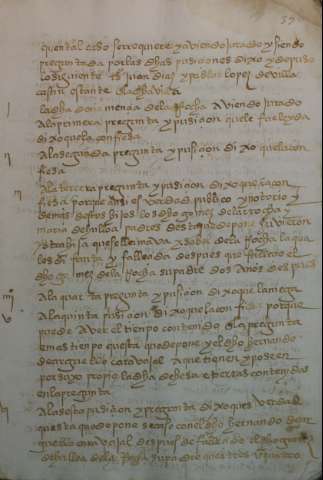 57
que en tal caso se requiere y aviendo jurado y siendo
preguntada por las dhas pusiciones dixo y depuso
lo siguiente tºs Juan Diaz y pablos lopez de villa
castin estante
la dha doña mencia de la Rocha Aviendo jurado
A la primera pregunta y pusicion que le fue leyda
dixo que la confiesa
A la segunda pregunta y pusicion dixo que la con
fiesa
A la tercera pregunta y pusicion dixo que la con
fiesa porque ansi es verdad publico y notorio y
demas destos hijos los dho gomez de la rocha y
maria de ulloa padres desta que depone tuvieron
otra hija que se llamava ysabel de la Rocha la qual
es di funta y fallecio despues que fallecio el
dho gomez de la Rocha su padre dos Años despues
A la quarta pregunta y pusicion dixo que la niega
A la quinta pusicion dixo que la confiesa porque
puede Aver el tienpo contenido en la pregunta
e mas tienpo questa que depone y el dho hernando
de arguello caravajal A que tienen y poseen
por suyo propio la dha dehesa e tierras contenidas
en la pregunta
A la sesta pusicion y pregunta dixo ques verdad
questa que depone se caso con el dho hernando de ar
guello caravajal despues de
de ulloa de la Rocha su padre